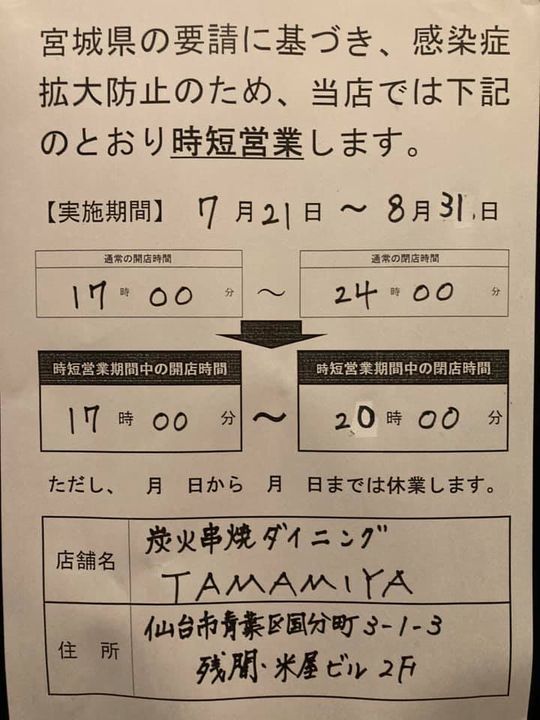 宮城県の要請に基づき、感染症
拡大防止のため、当店では下記
のとおり時短営業します。
【実施期間】 7月21日 ～ 8月31日
通常の開店時間 通常の閉店時間
17時00分 ～ 24時00分
時短営業期間中の開店時間 時短営業期間中の閉店時間
17時00分 ～ 20時00分
ただし、 月 日から 月 日までは休業します。
店舗名 炭火串焼ダイニング
TAMAMIYA
住 所 仙台市青葉区国分町3-1-3
残間・米屋ビル2F